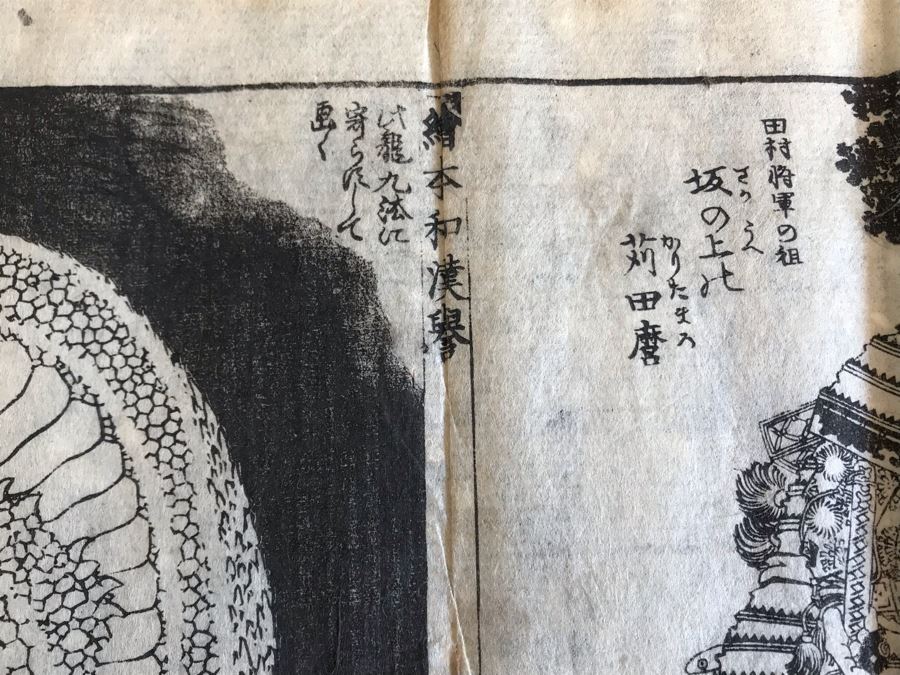 田村将軍の祖
さか うへ
坂の上の
かりたまろ
苅田麿
繪本和漢譽
此龍九法に
寄らずして
画く